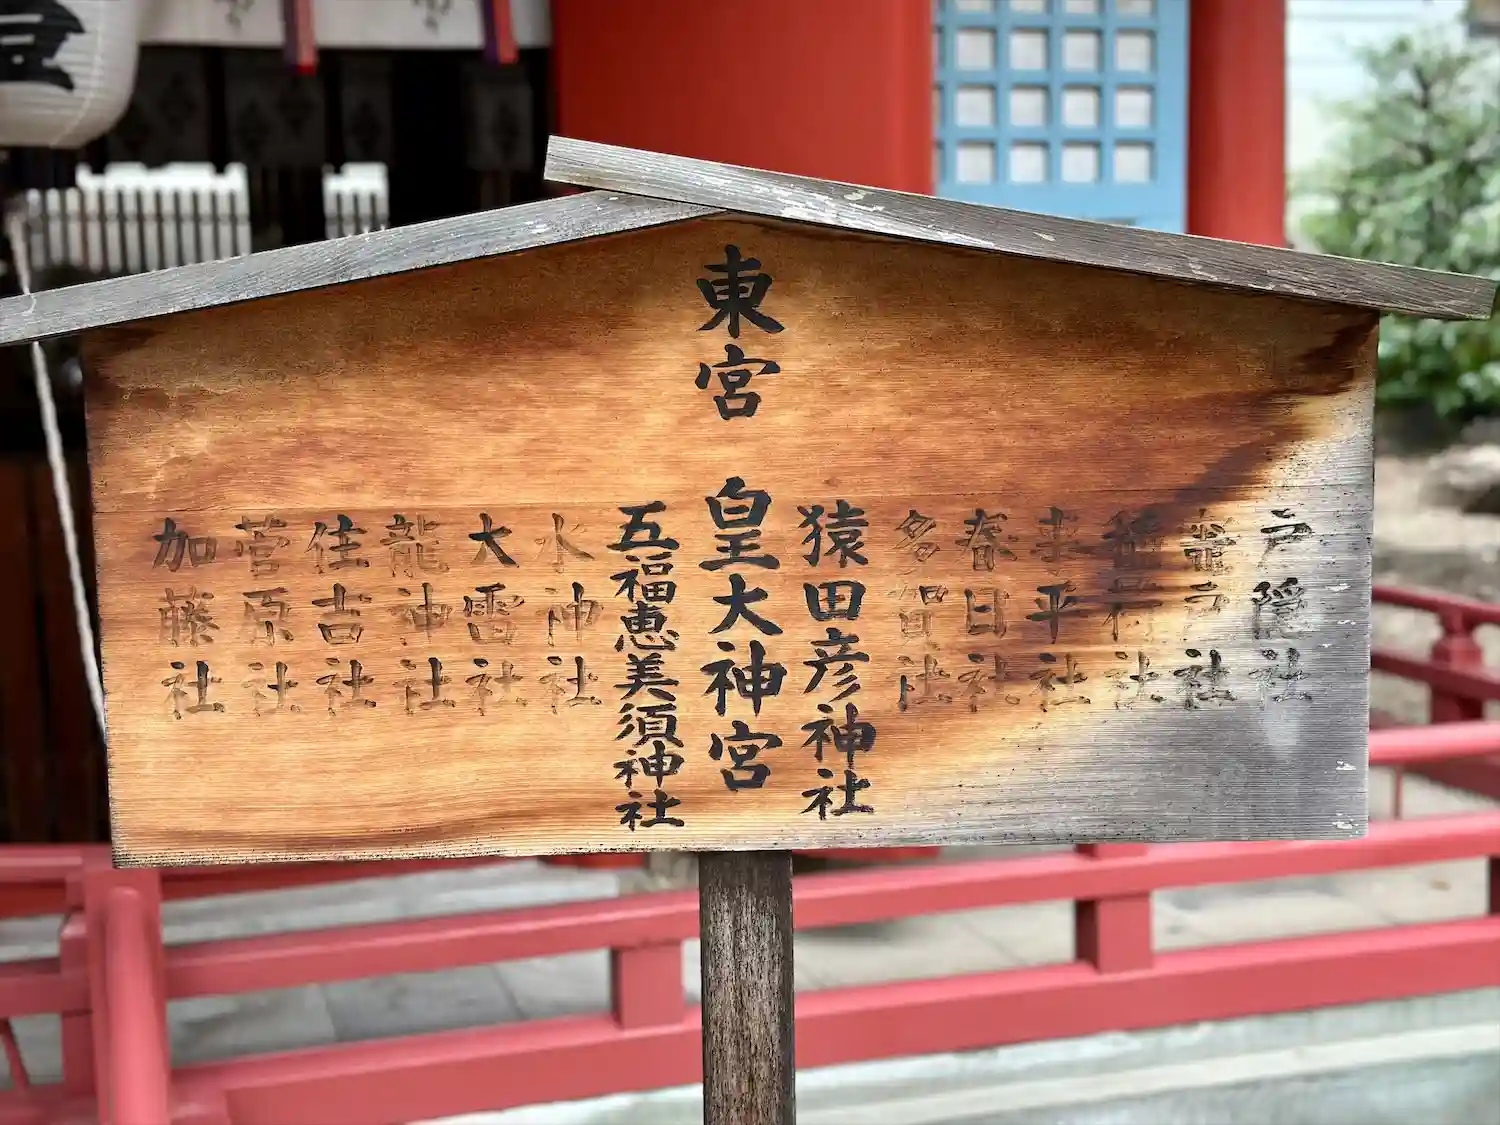 戸隠社
竈戸社
稲荷社
平社
春日社
多賀社
猿田彦神社
東宮 皇大神宮
五福恵美須神社
水神社
大雷社
龍神社
住吉社
菅原社
加藤社